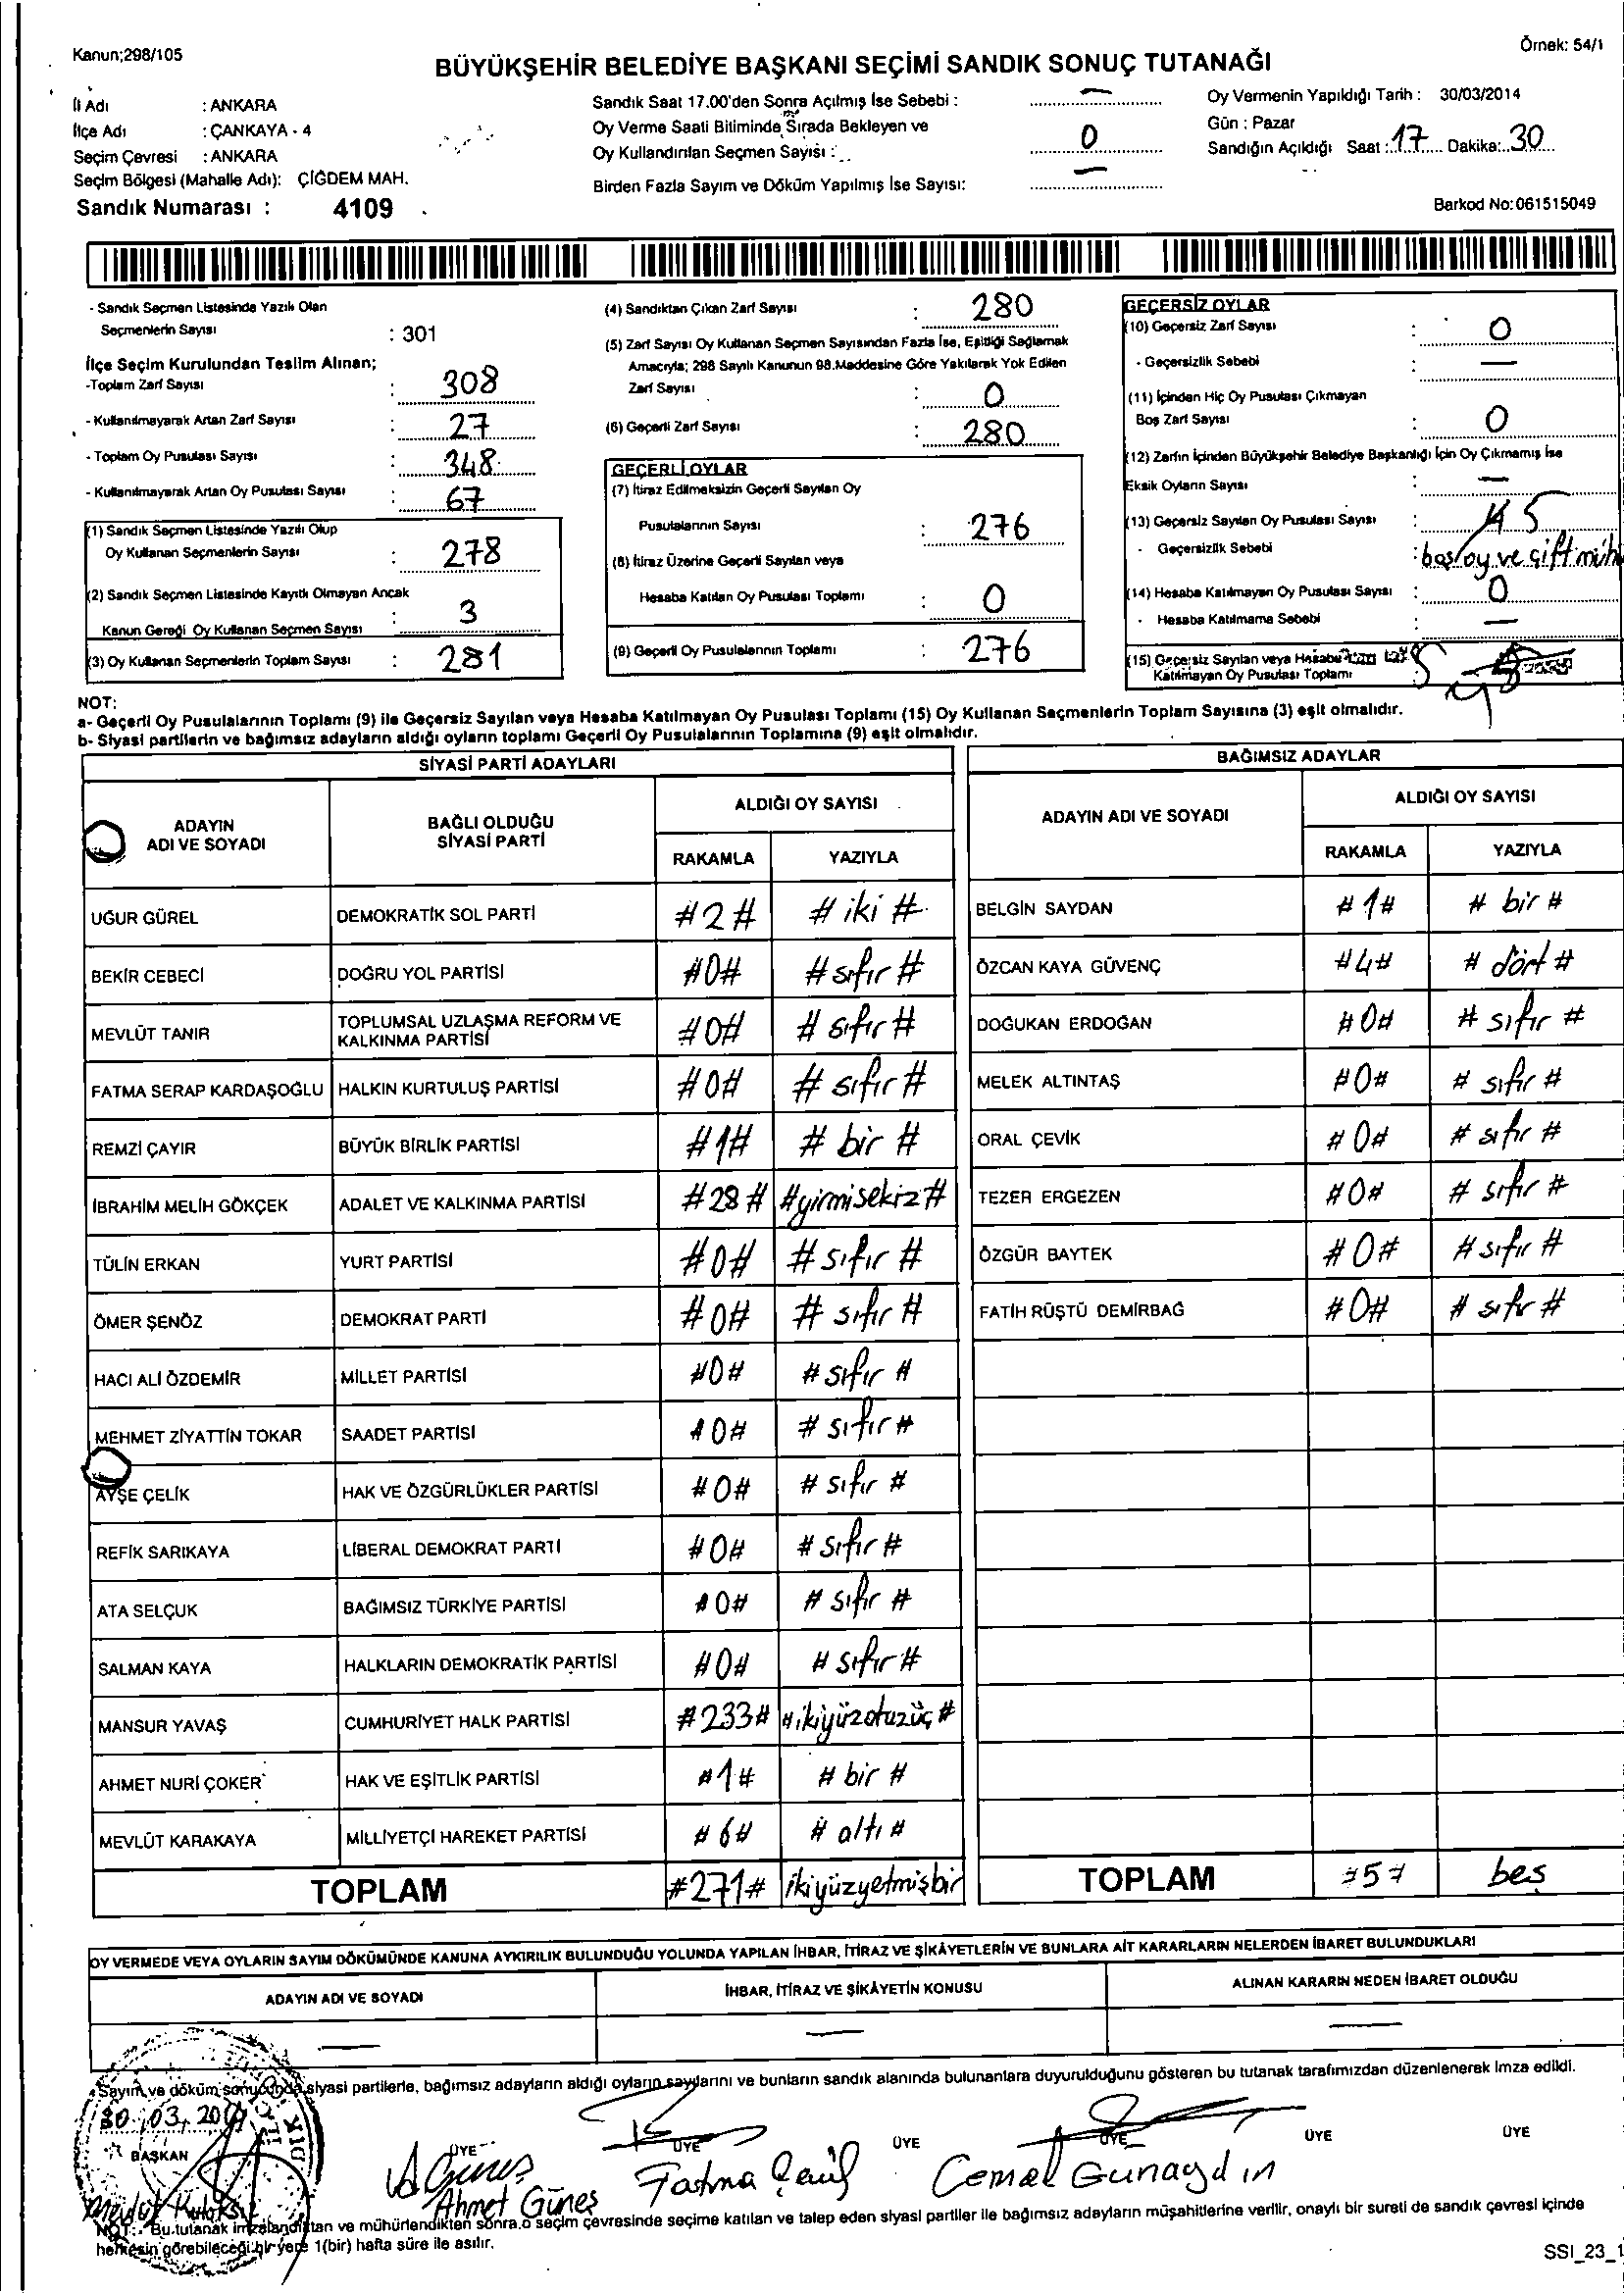 Kanun;298/105
Örnek: 54/1
BÜYÜKŞEHİR BELEDİYE BAŞKANI SEÇİMİ SANDIK SONUÇ TUTANAĞI
İl Adı : ANKARA
İlçe Adı : ÇANKAYA - 4
Seçim Çevresi : ANKARA
Seçim Bölgesi (Mahalle Adı): ÇİĞDEM MAH.
Sandık Numarası : 4109
Sandık Saat 17.00'den Sonra Açılmış İse Sebebi : —
Oy Verme Saati Bitiminde Sırada Bekleyen ve
Oy Kullandırılan Seçmen Sayısı : 0
Birden Fazla Sayım ve Döküm Yapılmış İse Sayısı: —
Oy Vermenin Yapıldığı Tarih : 30/03/2014
Gün : Pazar
Sandığın Açıldığı Saat : 17 Dakika: 30
Barkod No:061515049
- Sandık Seçmen Listesinde Yazılı Olan
Seçmenlerin Sayısı : 301
İlçe Seçim Kurulundan Teslim Alınan;
-Toplam Zarf Sayısı : 308
- Kullanılmayarak Artan Zarf Sayısı : 27
- Toplam Oy Pusulası Sayısı : 348
- Kullanılmayarak Artan Oy Pusulası Sayısı : 67
(1) Sandık Seçmen Listesinde Yazılı Olup
Oy Kullanan Seçmenlerin Sayısı : 278
(2) Sandık Seçmen Listesinde Kayıtlı Olmayan Ancak
Kanun Gereği Oy Kullanan Seçmen Sayısı : 3
(3) Oy Kullanan Seçmenlerin Toplam Sayısı : 281
(4) Sandıktan Çıkan Zarf Sayısı : 280
(5) Zarf Sayısı Oy Kullanan Seçmen Sayısından Fazla İse, Eşitliği Sağlamak
Amacıyla; 298 Sayılı Kanunun 98.Maddesine Göre Yakılarak Yok Edilen
Zarf Sayısı : 0
(6) Geçerli Zarf Sayısı : 280
GEÇERLİ OYLAR
(7) İtiraz Edilmeksizin Geçerli Sayılan Oy
Pusulalarının Sayısı : 276
(8) İtiraz Üzerine Geçerli Sayılan veya
Hesaba Katılan Oy Pusulası Toplamı : 0
(9) Geçerli Oy Pusulalarının Toplamı : 276
GEÇERSİZ OYLAR
(10) Geçersiz Zarf Sayısı : 0
- Geçersizlik Sebebi : —
(11) İçinden Hiç Oy Pusulası Çıkmayan
Boş Zarf Sayısı : 0
(12) Zarfın İçinden Büyükşehir Belediye Başkanlığı İçin Oy Çıkmamış İse
Eksik Oyların Sayısı : —
(13) Geçersiz Sayılan Oy Pusulası Sayısı : 5
- Geçersizlik Sebebi : boş oy ve çift müh
(14) Hesaba Katılmayan Oy Pusulası Sayısı : 0
- Hesaba Katılmama Sebebi : —
(15) Geçersiz Sayılan veya Hesaba
Katılmayan Oy Pusulası Toplamı 5
NOT:
a- Geçerli Oy Pusulalarının Toplamı (9) ile Geçersiz Sayılan veya Hesaba Katılmayan Oy Pusulası Toplamı (15) Oy Kullanan Seçmenlerin Toplam Sayısına (3) eşit olmalıdır.
b- Siyasi partilerin ve bağımsız adayların aldığı oyların toplamı Geçerli Oy Pusulalarının Toplamına (9) eşit olmalıdır.
SİYASİ PARTİ ADAYLARI
ADAYIN ADI VE SOYADI BAĞLI OLDUĞU SİYASİ PARTİ ALDIĞI OY SAYISI
RAKAMLA YAZIYLA
UĞUR GÜREL DEMOKRATİK SOL PARTİ #2# #iki#
BEKİR CEBECİ DOĞRU YOL PARTİSİ #0# #sıfır#
MEVLÜT TANIR TOPLUMSAL UZLAŞMA REFORM VE KALKINMA PARTİSİ #0# #sıfır#
FATMA SERAP KARDAŞOĞLU HALKIN KURTULUŞ PARTİSİ #0# #sıfır#
REMZİ ÇAYIR BÜYÜK BİRLİK PARTİSİ #1# #bir#
İBRAHİM MELİH GÖKÇEK ADALET VE KALKINMA PARTİSİ #28# #yirmisekiz#
TÜLİN ERKAN YURT PARTİSİ #0# #sıfır#
ÖMER ŞENÖZ DEMOKRAT PARTİ #0# #sıfır#
HACI ALİ ÖZDEMİR MİLLET PARTİSİ #0# #sıfır#
MEHMET ZİYATTİN TOKAR SAADET PARTİSİ #0# #sıfır#
AYŞE ÇELİK HAK VE ÖZGÜRLÜKLER PARTİSİ #0# #sıfır#
REFİK SARIKAYA LİBERAL DEMOKRAT PARTİ #0# #sıfır#
ATA SELÇUK BAĞIMSIZ TÜRKİYE PARTİSİ #0# #sıfır#
SALMAN KAYA HALKLARIN DEMOKRATİK PARTİSİ #0# #sıfır#
MANSUR YAVAŞ CUMHURİYET HALK PARTİSİ #233# #ikiyüzotuzüç#
AHMET NURİ ÇOKER HAK VE EŞİTLİK PARTİSİ #1# #bir#
MEVLÜT KARAKAYA MİLLİYETÇİ HAREKET PARTİSİ #6# #altı#
TOPLAM #271# ikiyüzyetmişbir
BAĞIMSIZ ADAYLAR
ADAYIN ADI VE SOYADI ALDIĞI OY SAYISI
RAKAMLA YAZIYLA
BELGİN SAYDAN #1# #bir#
ÖZCAN KAYA GÜVENÇ #4# #dört#
DOĞUKAN ERDOĞAN #0# #sıfır#
MELEK ALTINTAŞ #0# #sıfır#
ORAL ÇEVİK #0# #sıfır#
TEZER ERGEZEN #0# #sıfır#
ÖZGÜR BAYTEK #0# #sıfır#
FATİH RÜŞTÜ DEMİRBAĞ #0# #sıfır#
TOPLAM #5# beş
OY VERMEDE VEYA OYLARIN SAYIM DÖKÜMÜNDE KANUNA AYKIRILIK BULUNDUĞU YOLUNDA YAPILAN İHBAR, İTİRAZ VE ŞİKÂYETLERİN VE BUNLARA AİT KARARLARIN NELERDEN İBARET BULUNDUKLARI
ADAYIN ADI VE SOYADI İHBAR, İTİRAZ VE ŞİKÂYETİN KONUSU ALINAN KARARIN NEDEN İBARET OLDUĞU
— — —
Sayım ve döküm sonucunda siyasi partilerle, bağımsız adayların aldığı oyların sayılarını ve bunların sandık alanında bulunanlara duyurulduğunu gösteren bu tutanak tarafımızdan düzenlenerek imza edildi.
30.03.2014
BAŞKAN ÜYE ÜYE ÜYE ÜYE ÜYE ÜYE
A Güneş
Ahmet Güneş Fatma Cemal Günaydın
NOT:- Bu tutanak imzalandıktan ve mühürlendikten sonra,o seçim çevresinde seçime katılan ve talep eden siyasi partiler ile bağımsız adayların müşahitlerine verilir, onaylı bir sureti de sandık çevresi içinde
herkesin görebileceği bir yere 1(bir) hafta süre ile asılır.
SSI_23_1